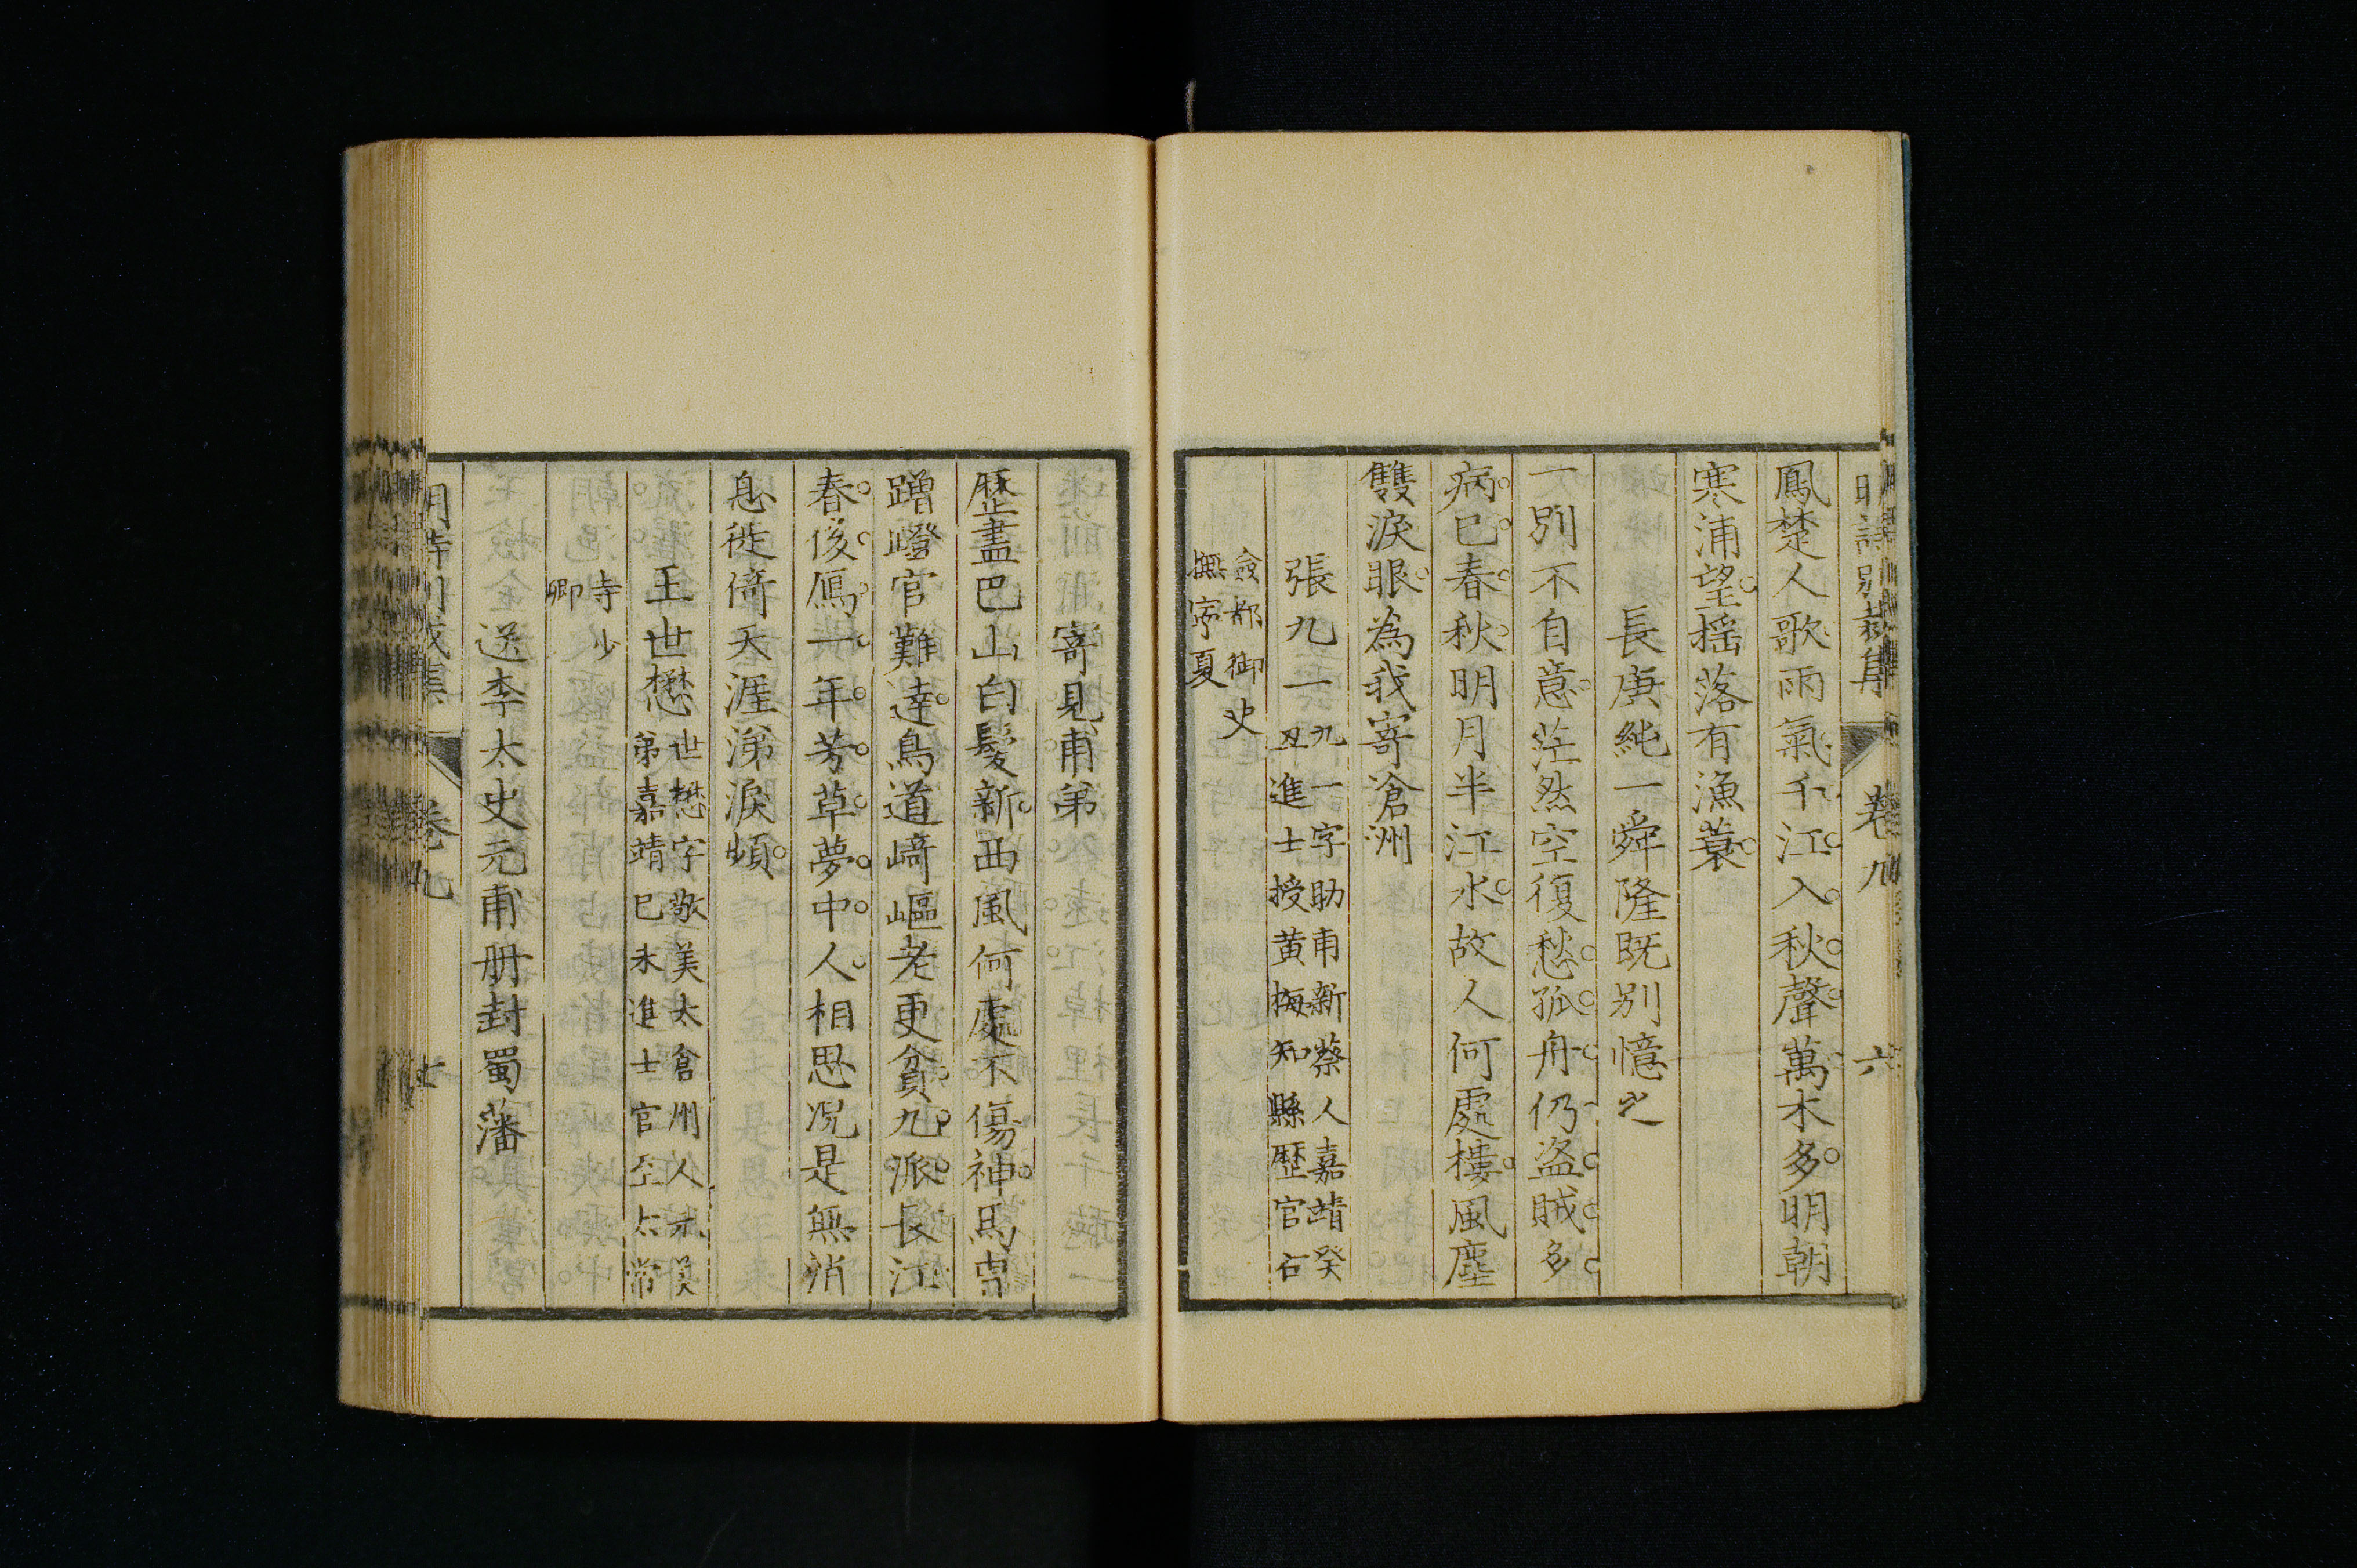 明詩別裁集 卷九 六
鳳楚人歌雨氣千江入秋聲萬木多明朝
寒浦望揺落有漁蓑
長庚純一舜隆既別憶之
一別不自意茫然空復愁孤舟仍盗賊多
病已春秋明月半江水故人何處樓風塵
雙淚眼為我寄滄洲
張九一九一字助甫新蔡人嘉靖癸
丑進士授黄梅知縣歷官右
僉都御史
撫寧夏
寄見甫弟
歷盡巴山白髮新西風何處不傷神馬曹
蹭蹬官難達鳥道崎嶇老更貧九派長江
春後鴈一年芳草夢中人相思况是無消
息徙倚天涯涕淚頻
王世懋世懋字敬美太倉州人元美
弟嘉靖己未進士官至太常
寺少
卿
送李太史元甫册封蜀藩
明詩別裁集 卷九 七